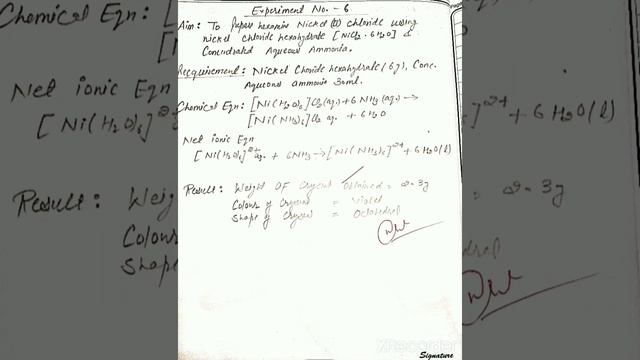 Experiment No. - 6
Aim: To Prepare hexamine Nickel (II) chloride using
nickel chloride hexahydrate [NiCl2 · 6H2O] &
Concentrated Aqueous Ammonia.
Requirement: Nickel Chloride hexahydrate (6g), Conc.
Aqueous ammonia 30ml.
Chemical Eqn: [Ni(H2O)6]Cl2(aq) + 6NH3(aq) →
[Ni(NH3)6]Cl2 aq. + 6H2O
Net ionic Eqn
[Ni(H2O)6]2+ aq. + 6NH3 → [Ni(NH3)6]2+ + 6H2O(l)
Result: Weight OF Crystal Obtained = 2.3g
Colour of Crystal = Violet
Shape of Crystal = Octahedral
Signature
Chemical Eqn: [
Net ionic Eqn
[Ni(H2O)6]2+
Result: Weig
Colou
Shape
]2+ + 6H2O(l)
= 2.3g
hedral
XRecorder